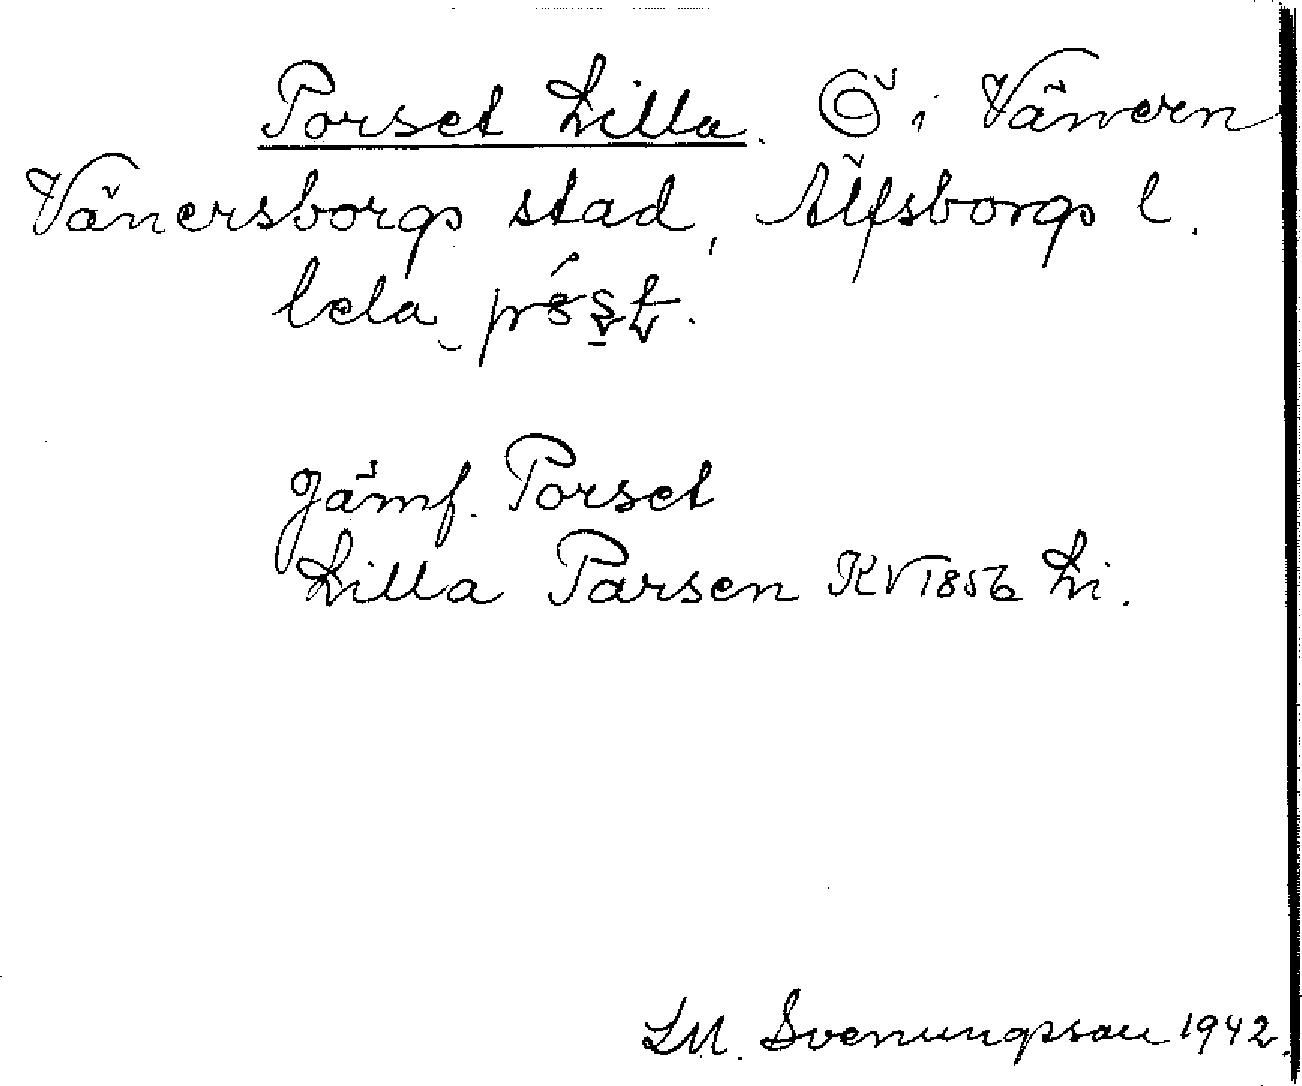 Porset Lilla. Ö i Vänern
Vänersborgs stad, Älfsborgs l.
lela
Jämf. Porset
Lilla Parsen KV 1856 Li.
LM. Svenungsson 1942.